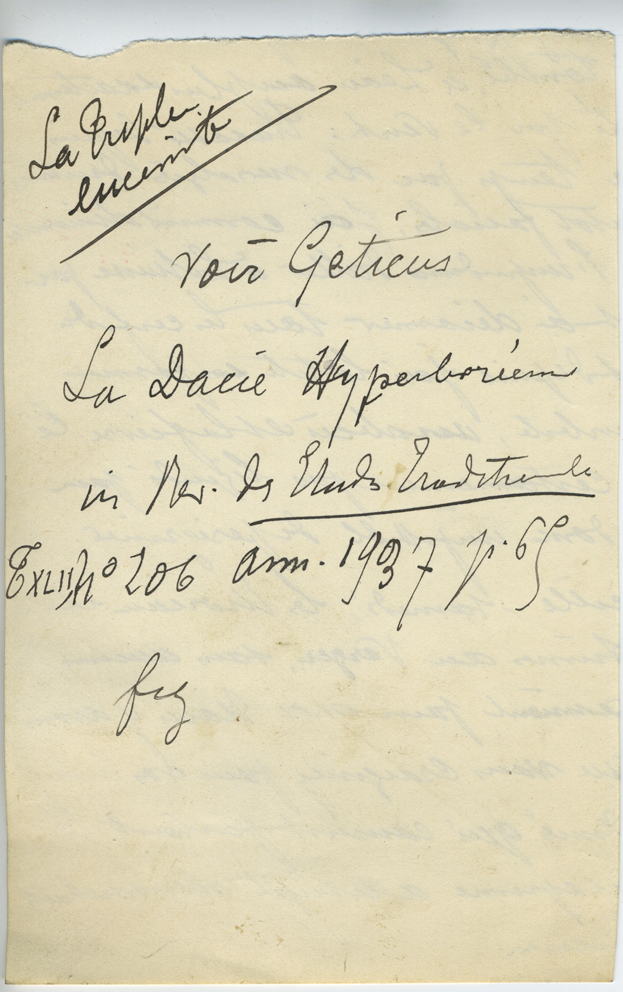 La Triple
enceinte
voir Geticus
La Dacie Hyperboréenne
in Rev. des Etudes Traditionnelles
T XLII, No 206 ann. 1937 p. 65
fig